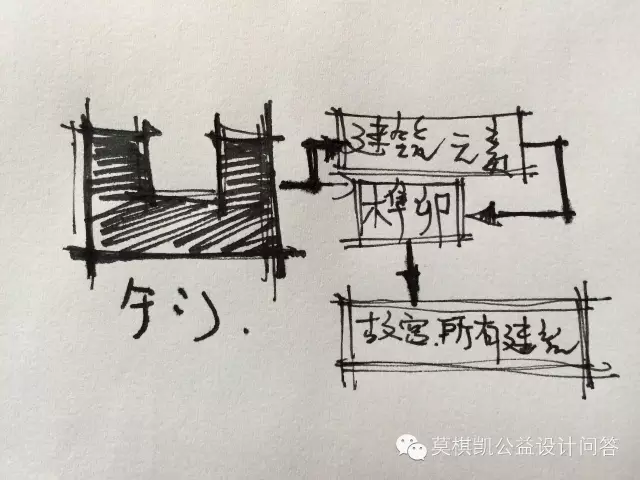 建筑元素
榫卯
午门.
故宫.所有建筑
莫棋凯公益设计问答